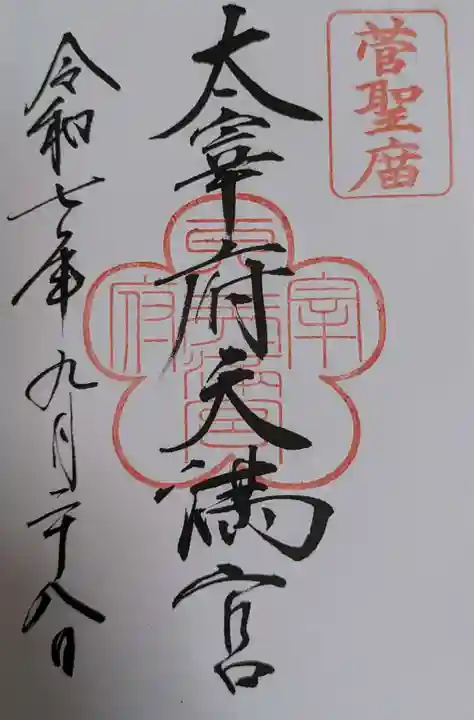 菅聖廟
太宰府天満宮
令和七年九月二十八日